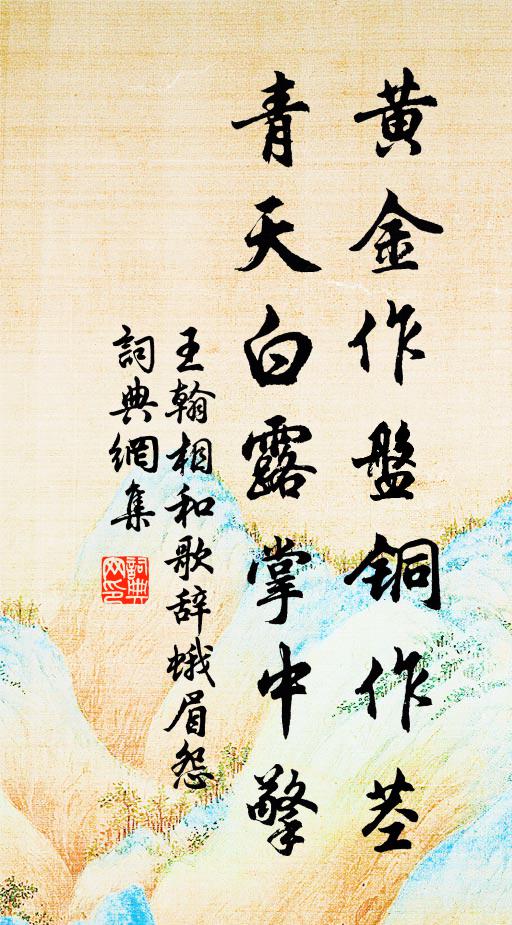 黄金作盤铜作茎
青天白露掌中擎
王翰相和歌辞蛾眉怨
詞典網集
詞典网印